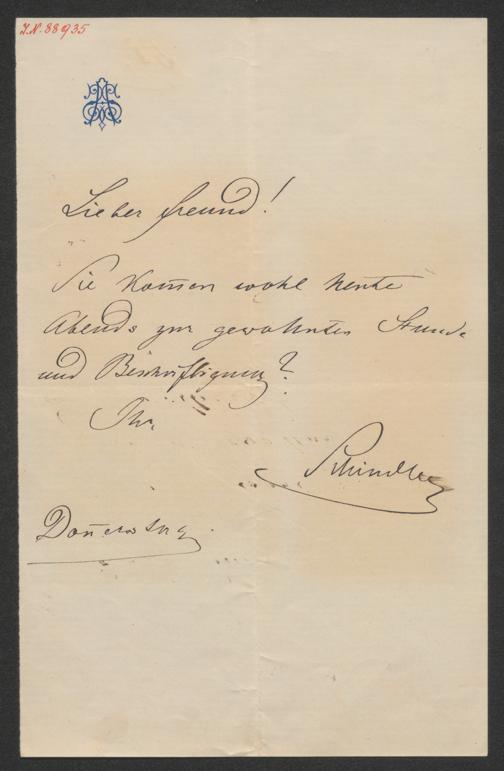 I.N. 88935
Lieber Freund!
Sie kom̅en wohl heute
Abends zur gewohnten Stunde
und Beschäftigung?
Ihr
Schindler
Don̅erstag.